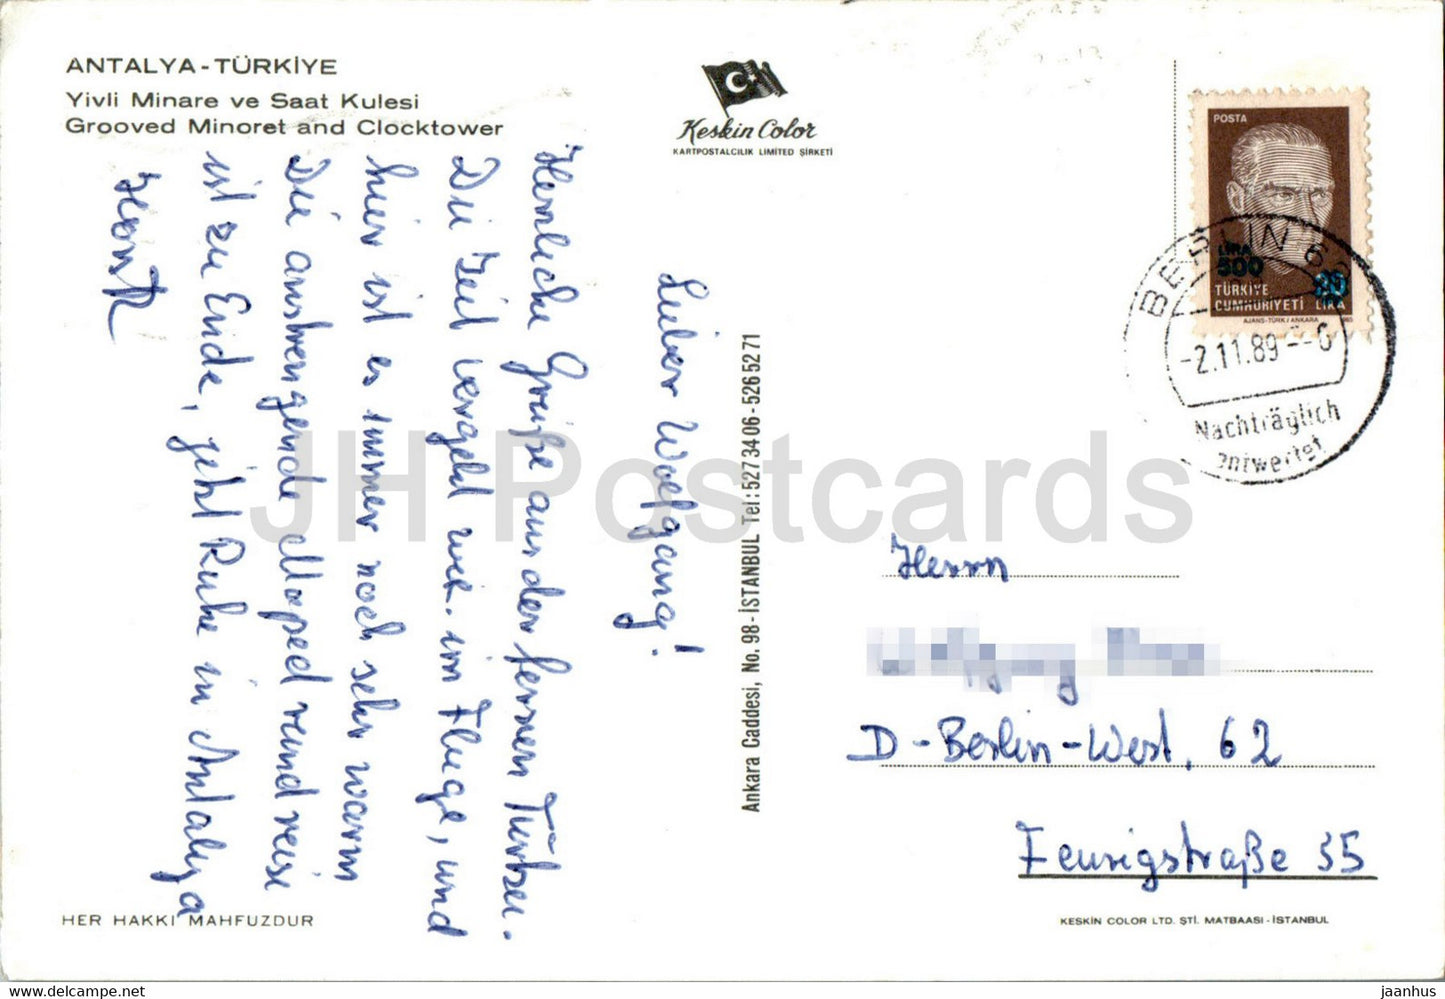 ANTALYA - TÜRKİYE
Yivli Minare ve Saat Kulesi
Grooved Minoret and Clocktower
Keskin Color
KARTPOSTALCILIK LIMITED ŞİRKETİ
POSTA
LIRA
500
20
TÜRKİYE
CUMHURİYETİ LİRA
AJANS-TÜRK / ANKARA
BERLIN 62
-2.11.89
Nachträglich
entwertet
Lieber Wolfgang!
Herzliche Grüße aus der fernen Türkei.
Die Zeit vergeht wie im Fluge, und
hier ist es immer noch sehr warm
Die anstrengende Rundreise
ist zu Ende, jetzt Ruhe in Antalya
Horst
Ankara Caddesi, No. 98 - İSTANBUL Tel: 527 34 06 - 526 52 71
Herrn
D-Berlin-West, 62
Feurigstraße 55
HER HAKKI MAHFUZDUR
KESKİN COLOR LTD. ŞTİ. MATBAASI - İSTANBUL
JH Postcards
https://www.hippostcard.com
jaanhus